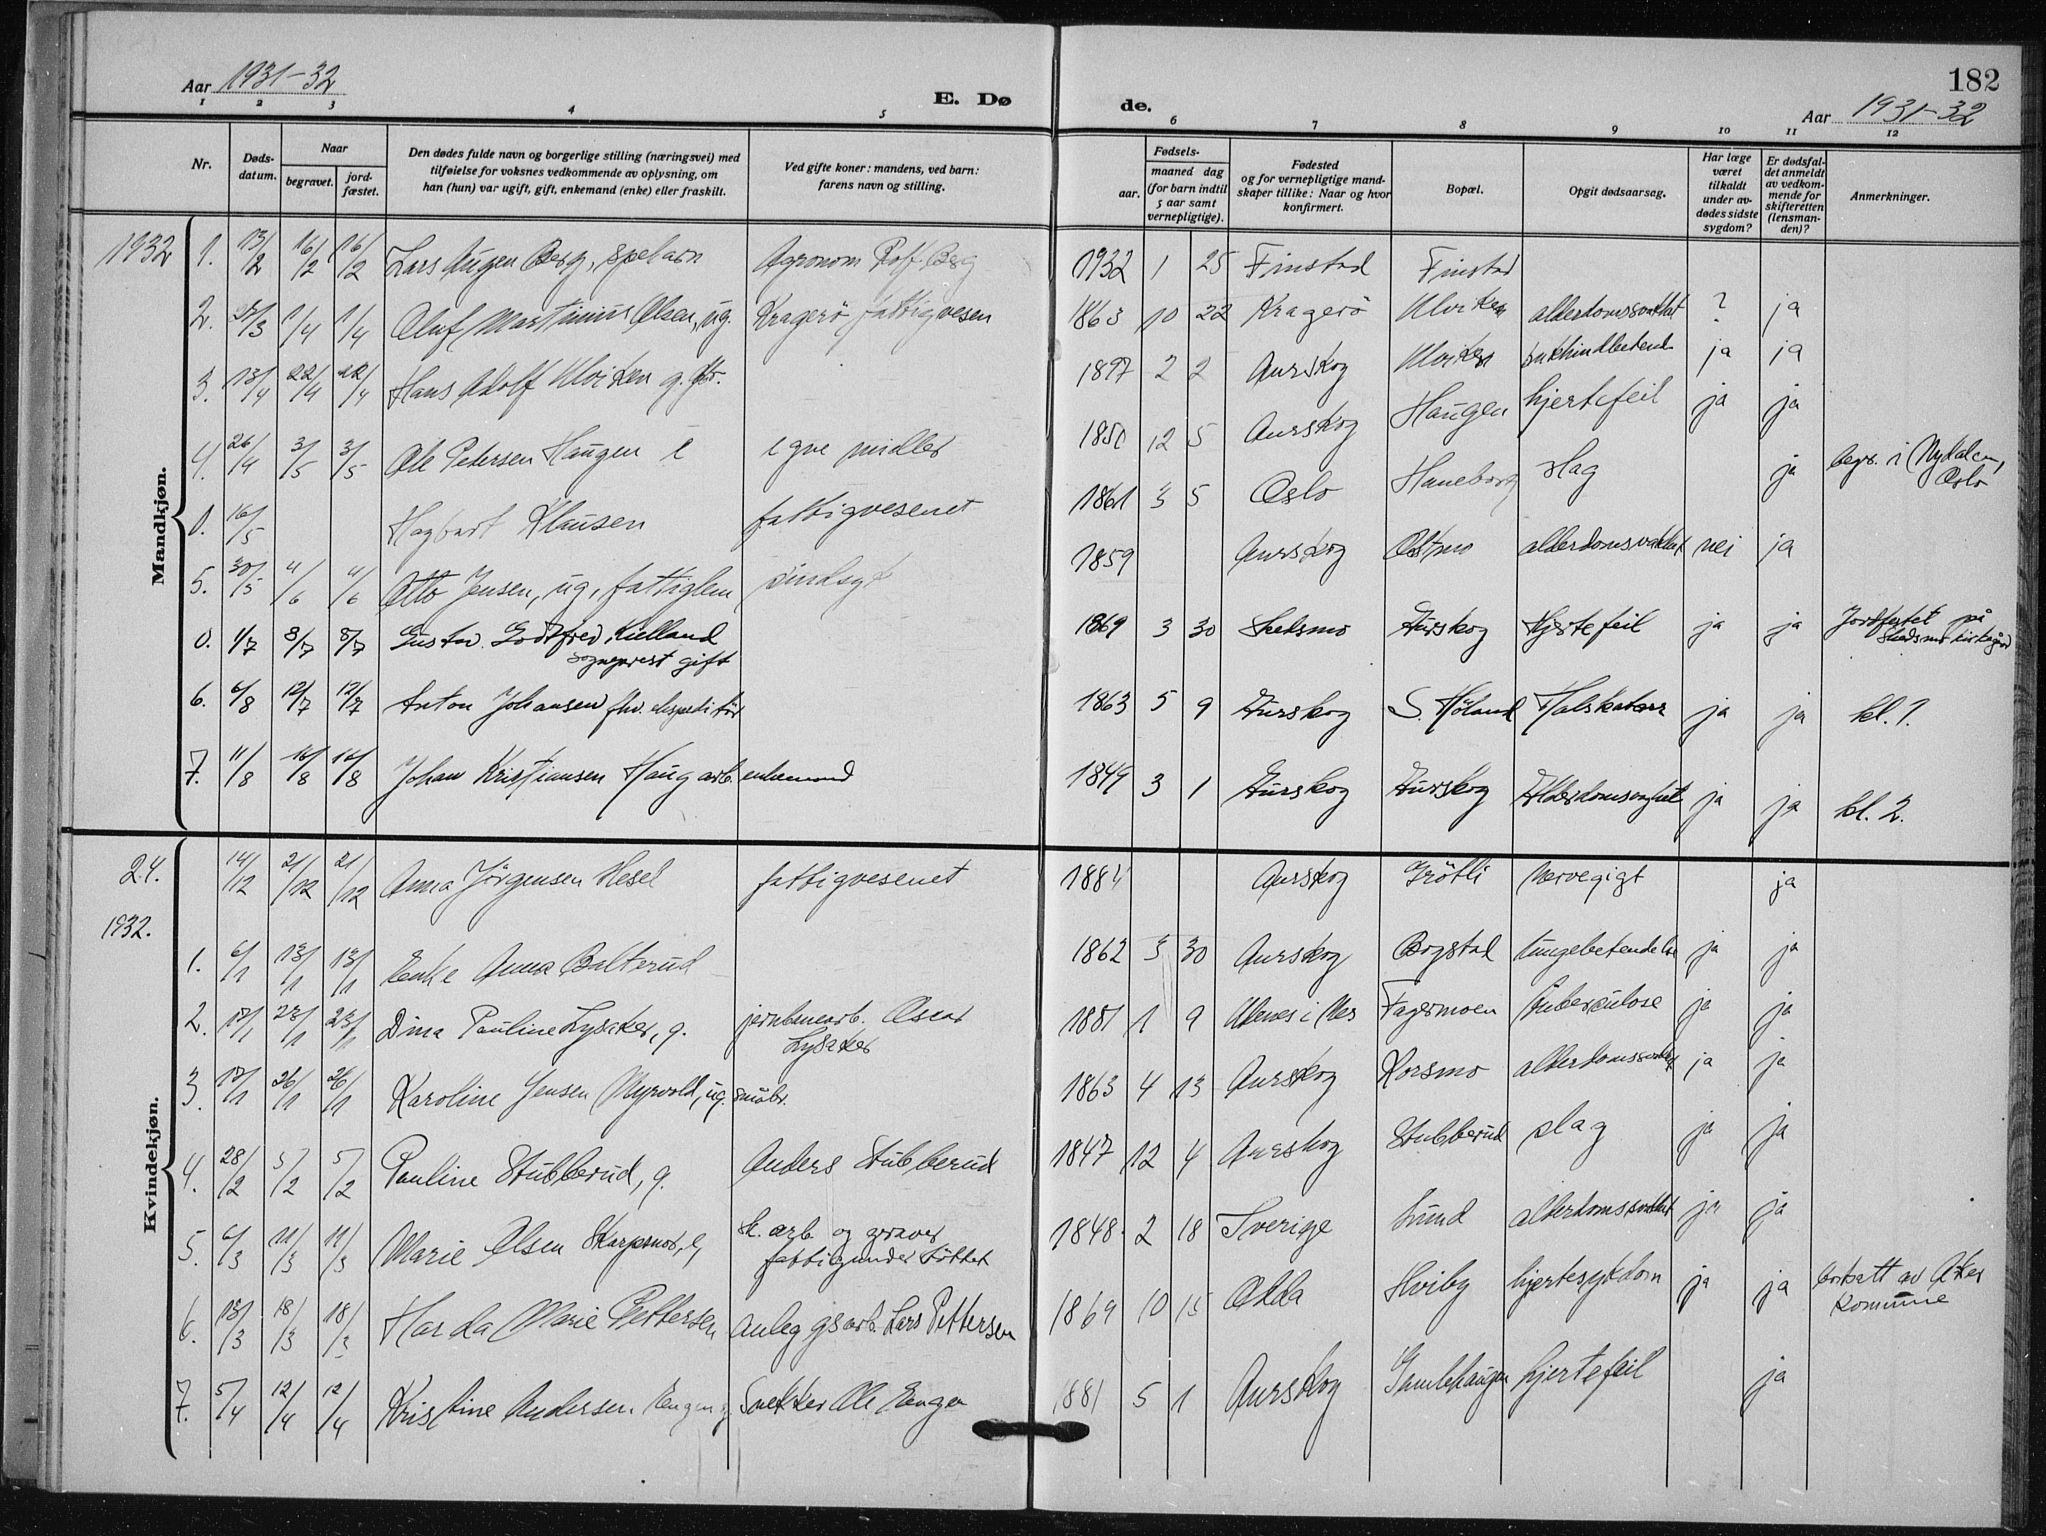 Aar 1931-32
E. Dø de.
182
Aar 1931-32
1 2 3 4 5 6 7 8 9 10 11 12
Nr. Døds-datum. Naar begravet. jord-fæstet. Den dødes fulde navn og borgerlige stilling (næringsvei) med tilføielse for voksnes vedkommende av oplysning, om han (hun) var ugift, gift, enkemand (enke) eller fraskilt. Ved gifte koner: mandens, ved barn: farens navn og stilling. Fødsels- aar. maaned dag (for barn indtil 5 aar samt vernepligtige). Fødested og for vernepligtige mandskaper tillike: Naar og hvor konfirmert. Bopæl. Opgit dødsaarsag. Har læge været tilkaldt under avdødes sidste sygdom? Er dødsfaldet anmeldt av vedkommende for skifteretten (lensmanden)? Anmerkninger.
Mandkjøn.
1932 1. 13/2 16/2 16/2 Lars Augen Berg, spebarn Agronom Rolf Berg 1932 1 25 Finstad Finstad
2. /3 1/4 1/4 Oluf Martinius Olsen, ug. Kragerö fattigvesen 1863 10 22 Kragerö Ulviken alderdomssvakhet ? ja
3. 13/4 22/4 22/4 Hans Adolf Ulviken g. 1897 2 2 Aurskog Ulviken ja ja
4. 26/4 3/5 3/5 Ole Petersen Haugen e egne midler 1850 12 5 Aurskog Haugen hjertefeil ja ja
0. 16/5 Hagbart Klausen fattigvesenet 1861 3 5 Oslo Haneborg slag ja begr. i Nydalen, Oslo
5. 30/5 4/6 4/6 Otto Jensen, ug, fattiglem sindsyk 1859 Aurskog Østmo alderdomsvakhet nei ja
0. 1/7 8/7 8/7 Gustav Godtfred Kielland sogneprest gift 1869 3 30 Skedsmo Aurskog Hjertefeil ja ja Jordfestet på Skedsmo kirkegård
6. 6/8 12/7 12/7 Anton Johansen fhv. ekspeditör 1863 5 9 Aurskog S. Høland Halskatarr ja ja kl. 1.
7. 11/8 16/8 16/8 Johan Kristiansen Haug arb. enkemand 1849 3 1 Aurskog Aurskog ja ja kl. 2.
Kvindekjøn.
24. 14/12 21/12 21/12 Anna Jörgensen Hesel fattigvesenet 1884 Aurskog Grötli Nervegigt ja
1932.
1. 6/1 13/1 13/1 Enke Anna Balterud 1862 3 30 Aurskog Bogstad lungebetendelse ja ja
2. 17/1 23/1 23/1 Dina Pauline Lysaker, g. jernbanearb. Oscar Lysaker 1881 1 9 Ulvnes i Nes Fagermoen Tuberculose ja ja
3. 17/1 26/1 26/1 Karoline Jensen Myrvold, ug. småbr. 1863 4 13 Aurskog Korsmo alderdomssvakhet ja ja
4. 28/2 5/2 5/2 Pauline Stubberud, g. Anders Stubberud 1847 12 4 Aurskog Stubberud slag ja ja
5. 6/3 11/3 11/3 Marie Olsen Skarpsno, e, sk. arb og graver fattigunderstöttet 1848 2 18 Sverige Lund alderdomssvakhet ja ja
6. 13/3 18/3 18/3 Harda Marie Pettersen Anleggsarb. Lars Pettersen 1869 10 15 Odda Hviby hjertesykdom ja ja bortsatt av Aker Kommune
7. 5/4 12/4 12/4 Kristine Andersen Engen g Snekker Ole Engen 1881 5 1 Aurskog Gamlehaugen hjertefeil ja